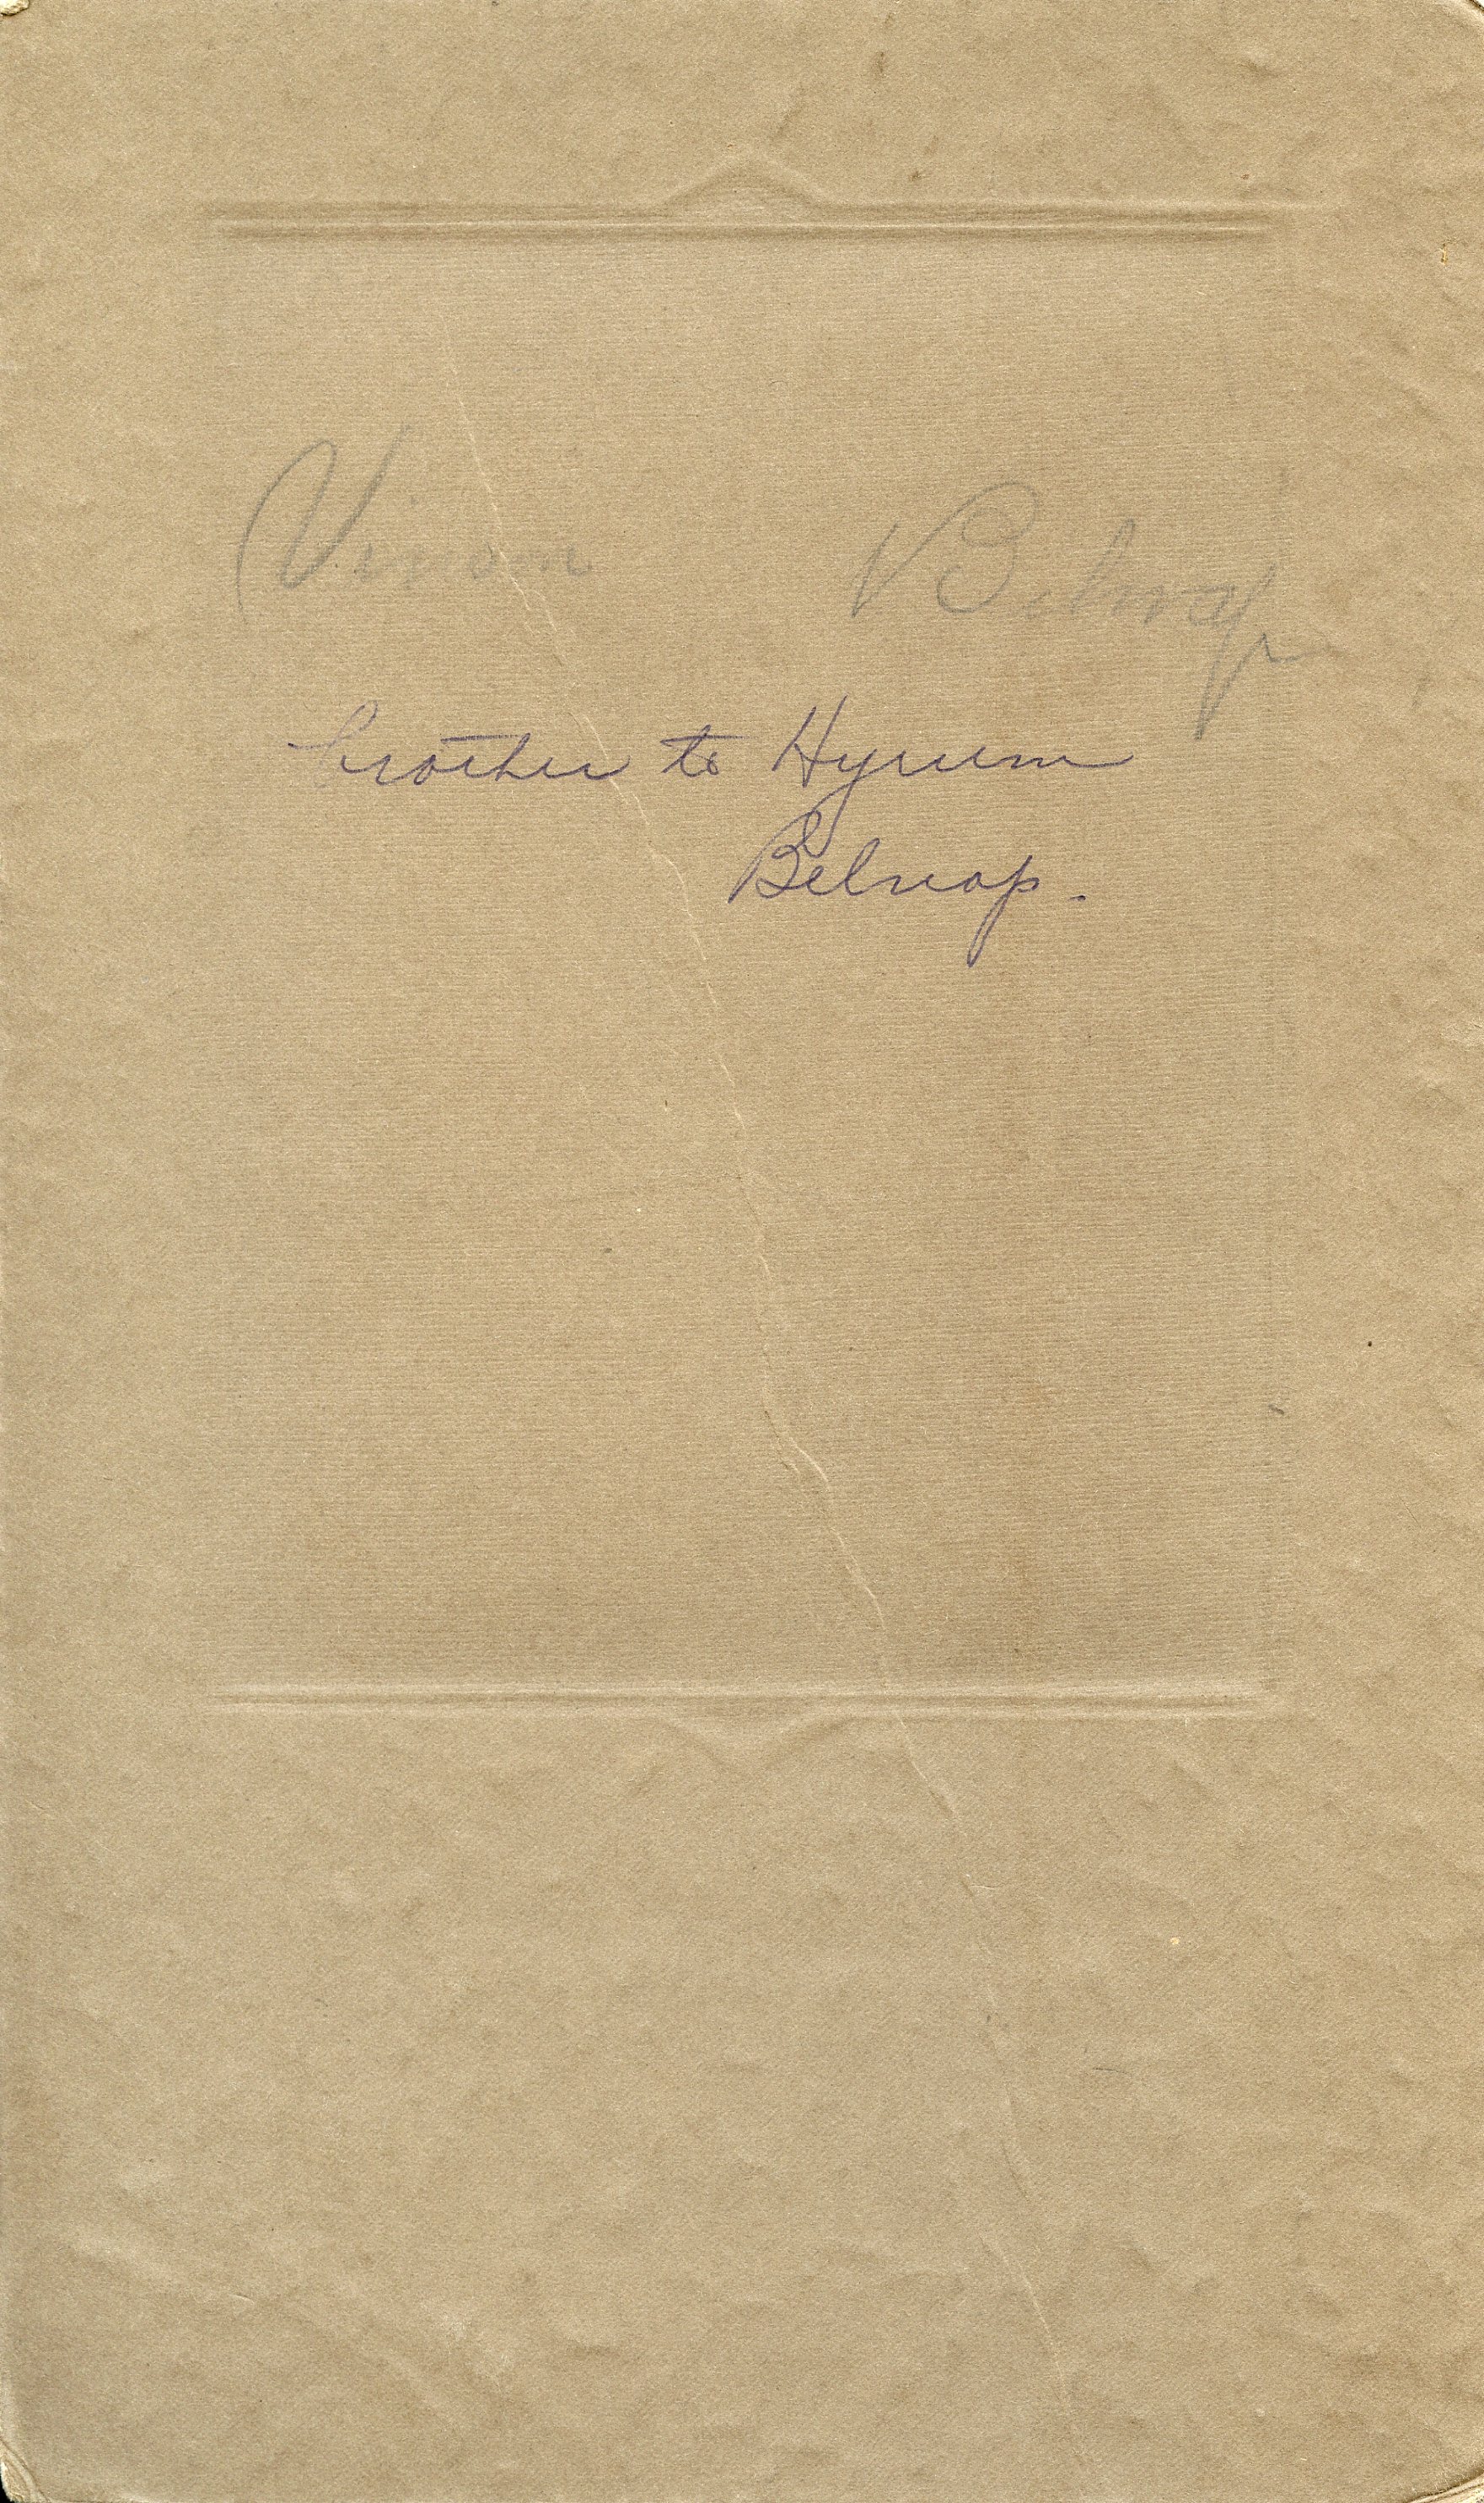 Vinson Belnap
brother to Hyrum
Belnap.